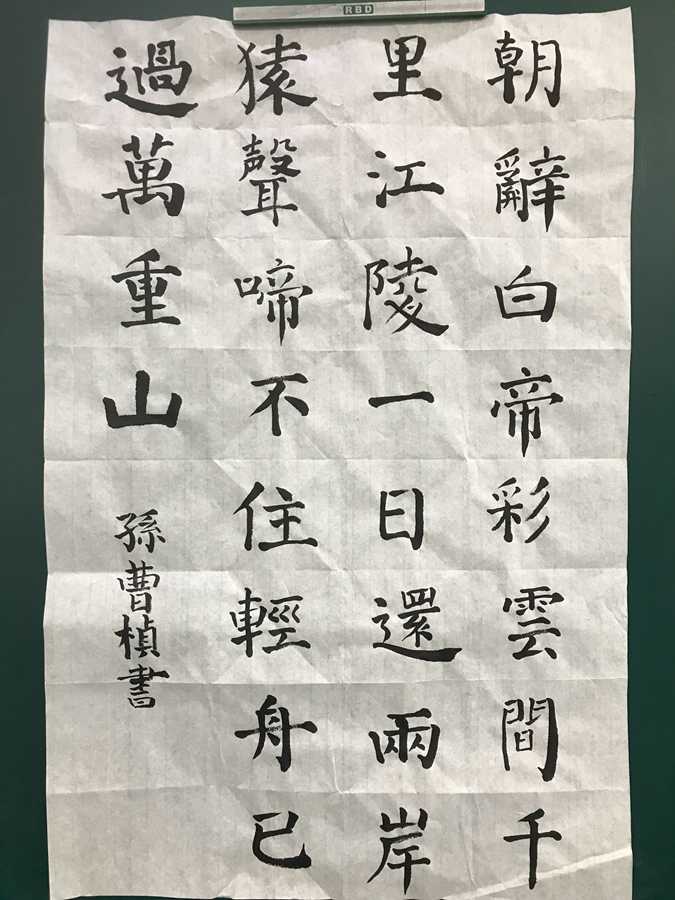 朝辭白帝彩雲間千
里江陵一日還兩岸
猿聲啼不住輕舟已
過萬重山
孫曹楨書
RBD